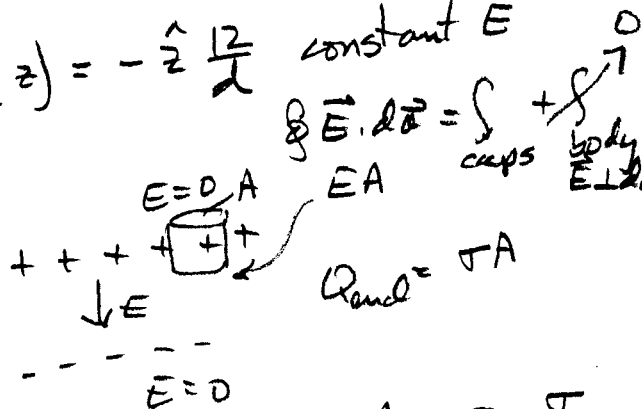 z) = - ẑ 12/d constant E
∮ E⃗ · da⃗ = ∫ caps + ∫ body 0
E⃗ ⊥ d
E = 0 A EA
+ + + + + +
Qencl = σA
↓ E
- - - - -
E = 0
σ